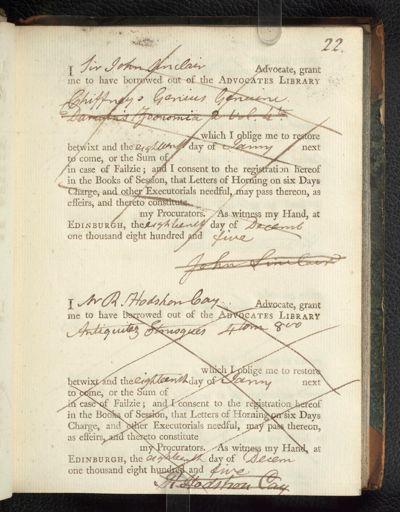 22.
I Sir John Sinclair Advocate, grant
me to have borrowed out of the ADVOCATES LIBRARY
Chiffney's Genius Genuine
Darwin's Zoonomia 2 Vol. 4to
which I oblige me to restore
betwixt and the eighteenth day of Janny next
to come, or the Sum of
in case of Failzie; and I consent to the registration hereof
in the Books of Session, that Letters of Horning on six Days
Charge, and other Executorials needful, may pass thereon, as
effeirs, and thereto constitute
my Procurators. As witness my Hand, at
EDINBURGH, the eighteenth day of Decemb
one thousand eight hundred and five
John Sinclair
I Mr R. Hodshon Cay Advocate, grant
me to have borrowed out of the ADVOCATES LIBRARY
Antiquites Etrusques 4 tom 8vo
which I oblige me to restore
betwixt and the eighteenth day of Janny next
to come, or the Sum of
in case of Failzie; and I consent to the registration hereof
in the Books of Session, that Letters of Horning on six Days
Charge, and other Executorials needful, may pass thereon,
as effeirs, and thereto constitute
my Procurators. As witness my Hand, at
EDINBURGH, the eighteenth day of Decem
one thousand eight hundred and five
R Hodshon Cay